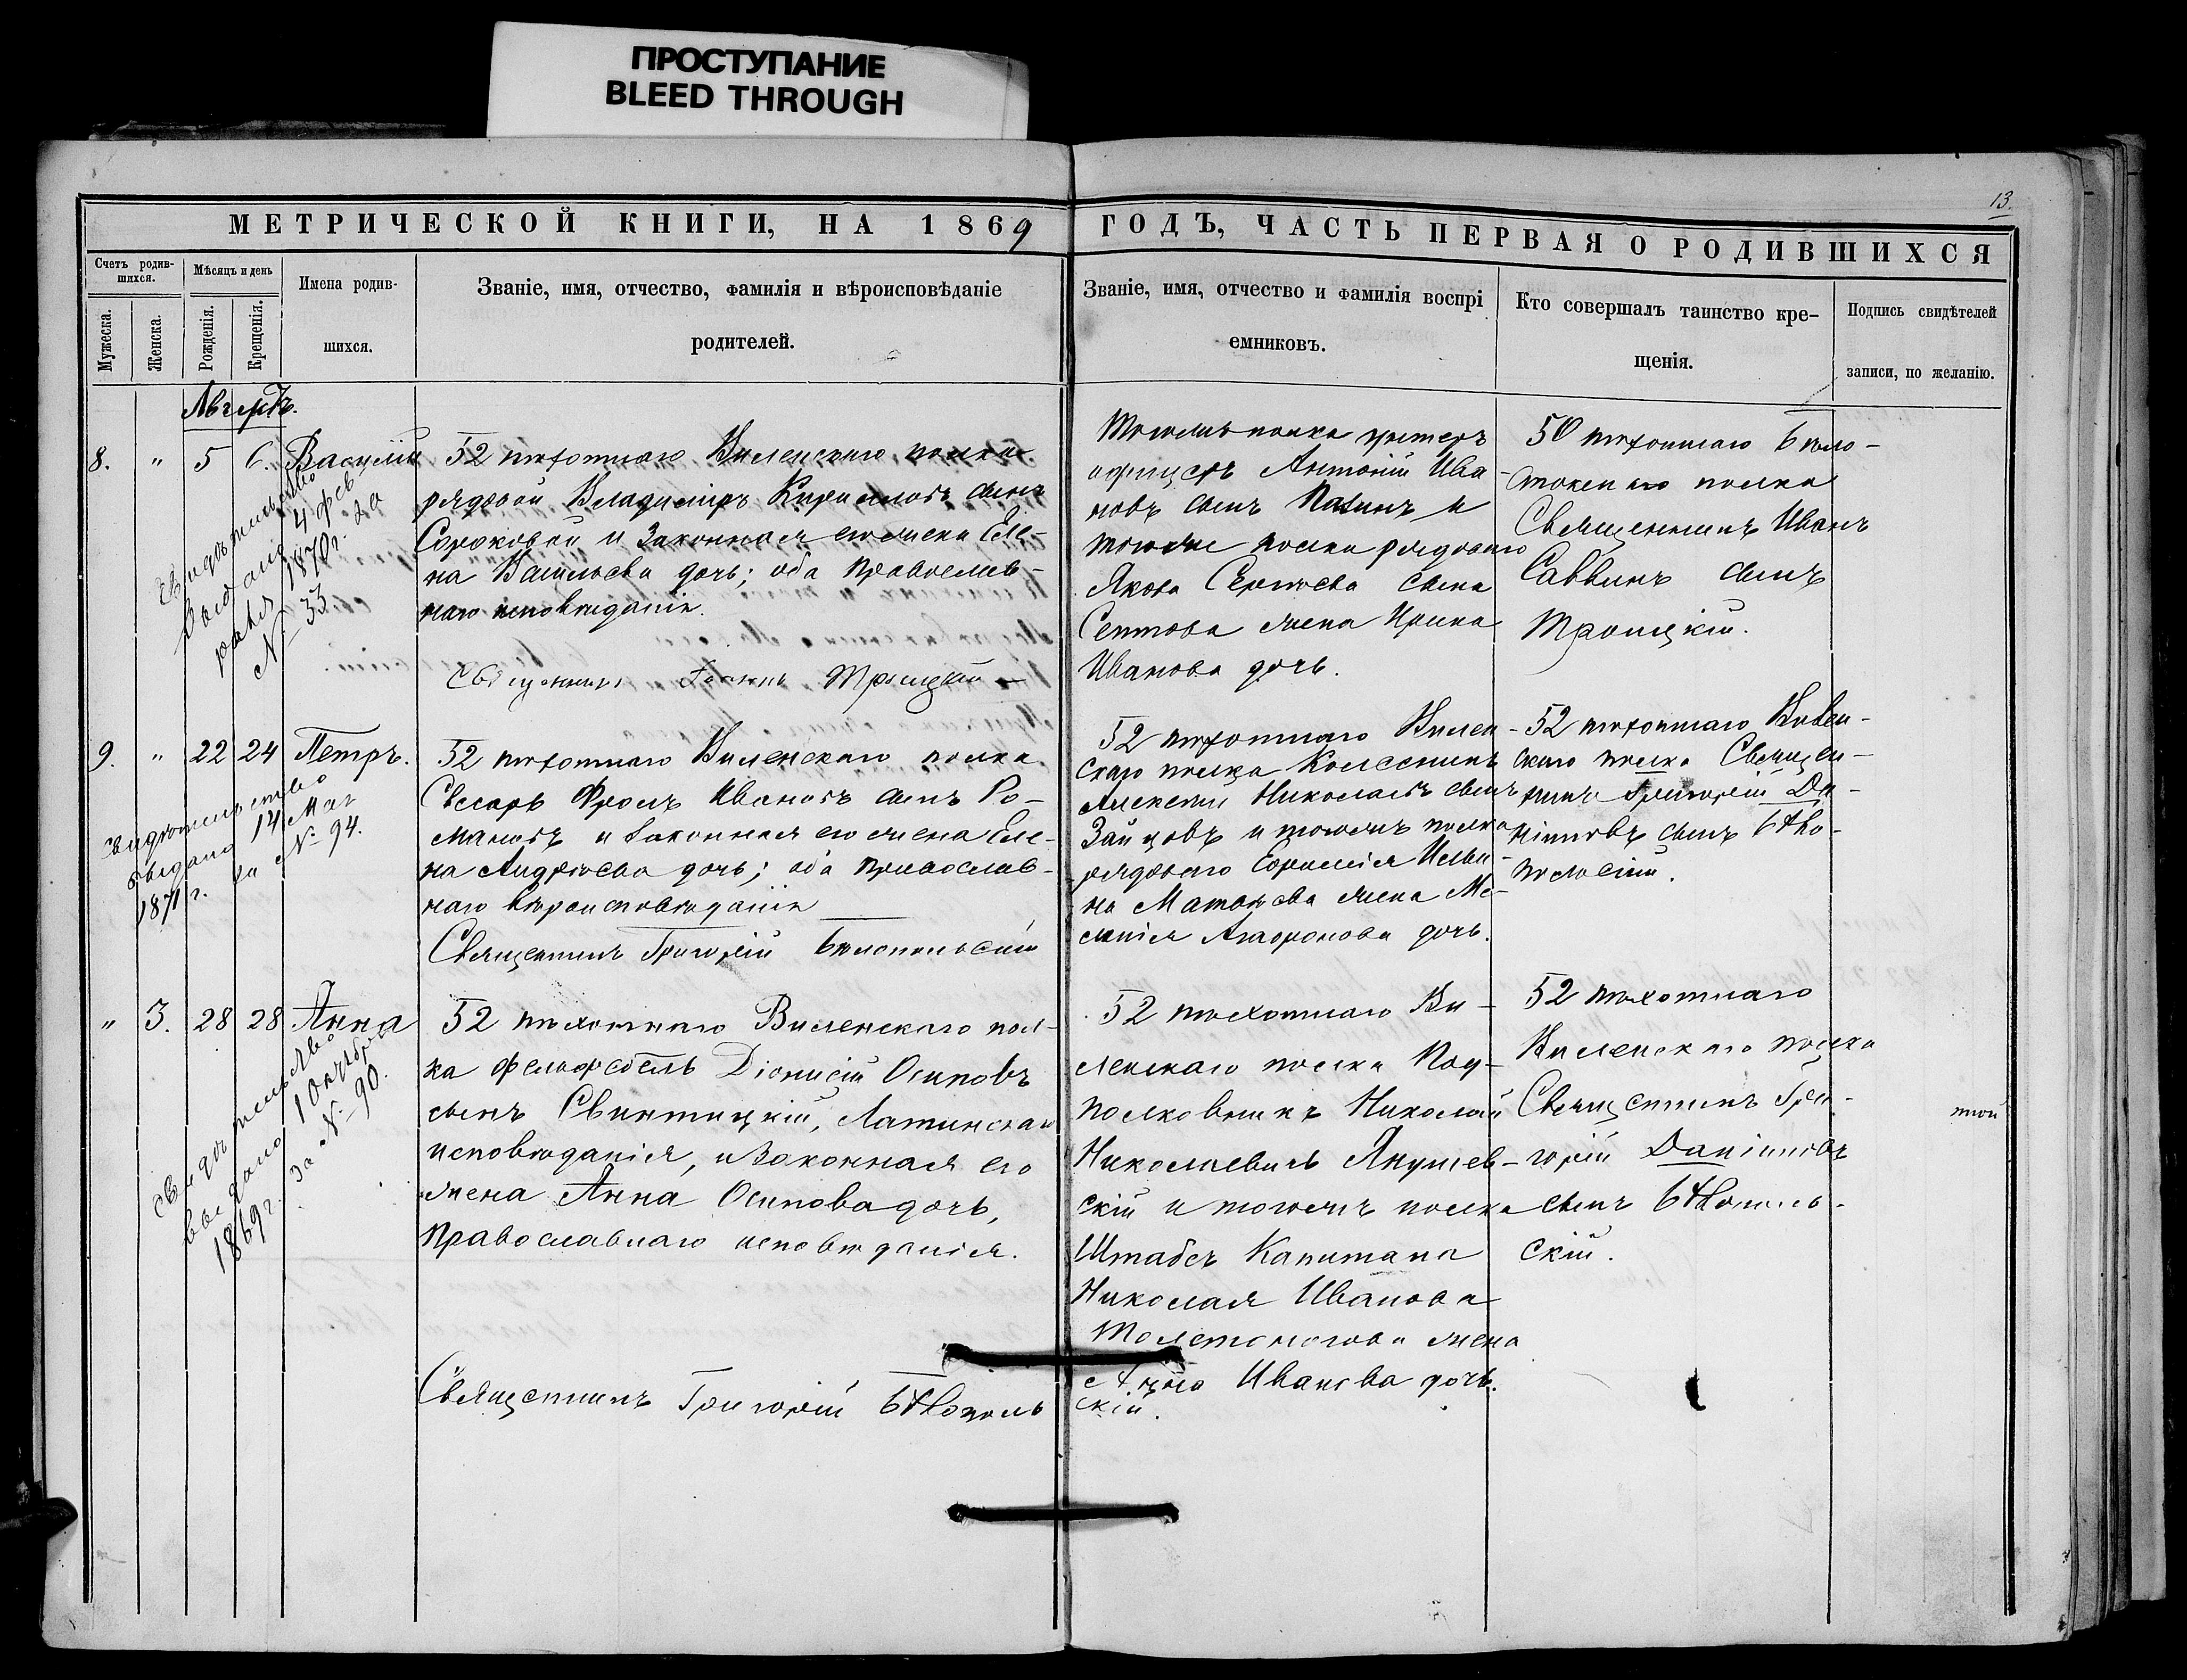 ПРОСТУПАНИЕ
BLEED THROUGH
13.
МЕТРИЧЕСКОЙ КНИГИ, НА 1869
ГОДЪ, ЧАСТЬ ПЕРВАЯ О РОДИВШИХСЯ
Счетъ родив-
шихся.
Мужеска.
Женска.
Мѣсяцъ и день
Рожденія.
Крещенія.
Имена родив-
шихся.
Званіе, имя, отчество, фамилія и вѣроисповѣданіе
родителей.
Званіе, имя, отчество и фамилія воспрі
емниковъ.
Кто совершалъ таинство кре-
щенія.
Подпись свидѣтелей
записи, по желанію.
Августъ.
8. " 5 6. Василій
Свидѣтельство
выдано 4 фев
раля 1870 г. за
№ 33
52 пѣхотнаго Виленскаго полка
рядовой Владиміръ Кириловъ сынъ
Сороковой и Законная его жена Еле-
на Васильева дочь; оба Православ-
наго исповѣданія.
Священникъ Іоаннъ Троицкій
Тогожъ полка унтеръ
офицеръ Антоній Ива-
новъ сынъ и
тогоже полка рядоваго
Якова Сергѣева сына
жена Ирина
Иванова дочь.
50 пѣхотнаго Бѣло-
стокскаго полка
Священникъ Иванъ
Саввинъ сынъ
Троицкій.
9. " 22 24 Петръ.
Свидѣтельство
выдано 14 Мая
1871 г. за № 94.
52 пѣхотнаго Виленскаго полка
Слесарь Фролъ Ивановъ сынъ Ро-
мановъ и Законная его жена Еле-
на Андреева дочь; оба Православ-
наго вѣроисповѣданія
Священникъ Григорій Бѣлопольскій
52 пѣхотнаго Вилен-
скаго полка Колесникъ
Алексѣй Николаевъ сынъ
Зайцовъ и тогожъ полка
рядоваго Ильи-
на Матвѣева жена Ме-
ланія дочь.
52 пѣхотнаго Вилен-
скаго полка Священ-
никъ Григорій Да-
ніиловъ сынъ Бѣло-
польскій.
" 3. 28 28 Анна
Свидѣтельство
выдано 1 октября
1869 г. за № 90.
52 пѣхотнаго Виленскаго пол-
ка фельдфебель Діонисій Осиповъ
сынъ Свинтицкій, Латинскаго
исповѣданія, и Законная его
жена Анна Осипова дочь,
Православнаго исповѣданія.
Священникъ Григорій Бѣлополь
скій.
52 пѣхотнаго Ви-
ленскаго полка Под-
полковникъ Николай
Николаевичъ Янушев-
скій и тогожъ полка
Штабсъ Капитана
Николая Иванова
Толстоногова жена
Анна Иванова дочь.
52 пѣхотнаго
Виленскаго полка
Священникъ Гри-
горій Даніиловъ
сынъ Бѣлополь-
скій.